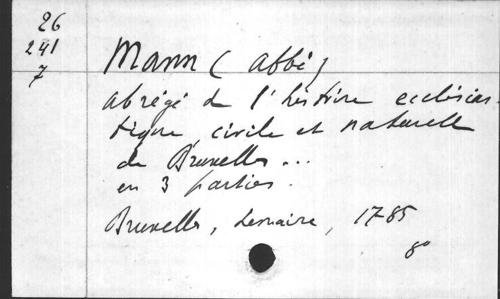 26
241
7
Mann (abbé)
abrégé de l'histoire ecclésias-
tique, civile et naturelle
de Bruxelles ...
en 3 parties.
Bruxelles, Lemaire, 1785
8°